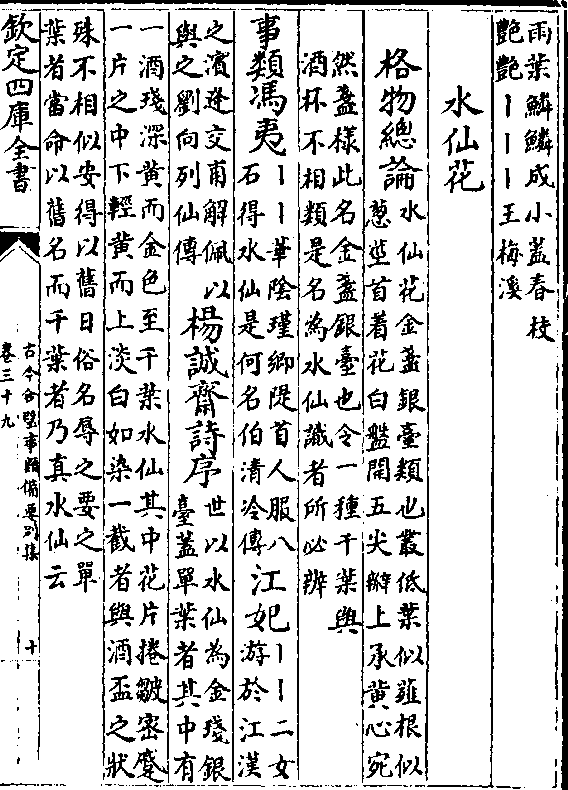 雨葉鱗鱗成小蓋春枝
艷艷丨丨丨王梅溪
水仙花
格物總論
水仙花金盞銀臺類也叢低葉似薤根似
葱莖首着花白盤開五尖瓣上承黄心宛
然盞樣此名金盞銀臺也令一種千葉與
酒杯不相類是名為水仙識者所必辨
事類馮夷
丨丨華陰瑾卿隄首人服八
石得水仙是何名伯清冷傳
江妃
丨丨二女
游於江漢
之濱逢交甫解佩
與之劉向列仙傳
以楊誠齋詩序
世以水仙為金琖銀
臺蓋單葉者其中有
一酒琖深黄而金色至千葉水仙其中花片捲皺密蹙
一片之中下輕黄而上淡白如染一截者與酒盃之狀
殊不相似安得以舊日俗名辱之要之單
葉者當命以舊名而千葉者乃真水仙云
欽定四庫全書
古今合璧事類備要别集
卷三十九
十